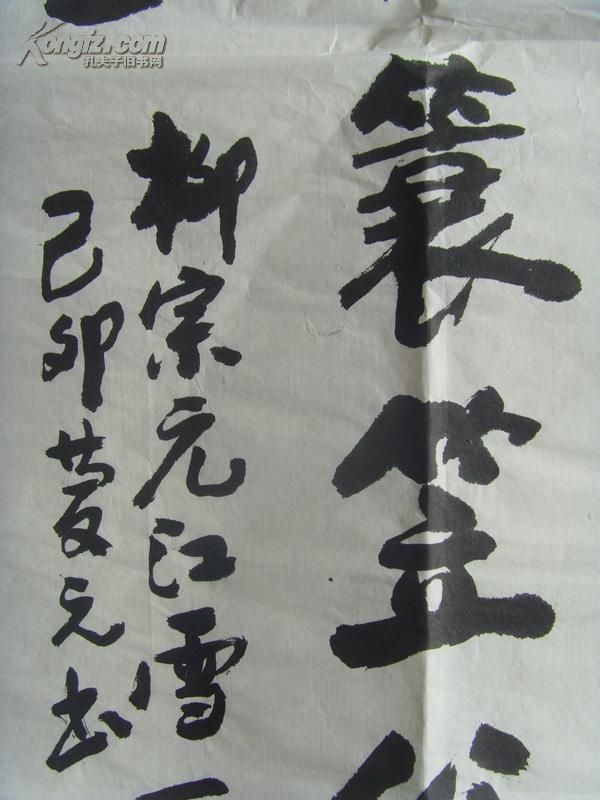 Kongfz.com
孔夫子旧书网
簑笠
柳宗元江雪
己卯 元书